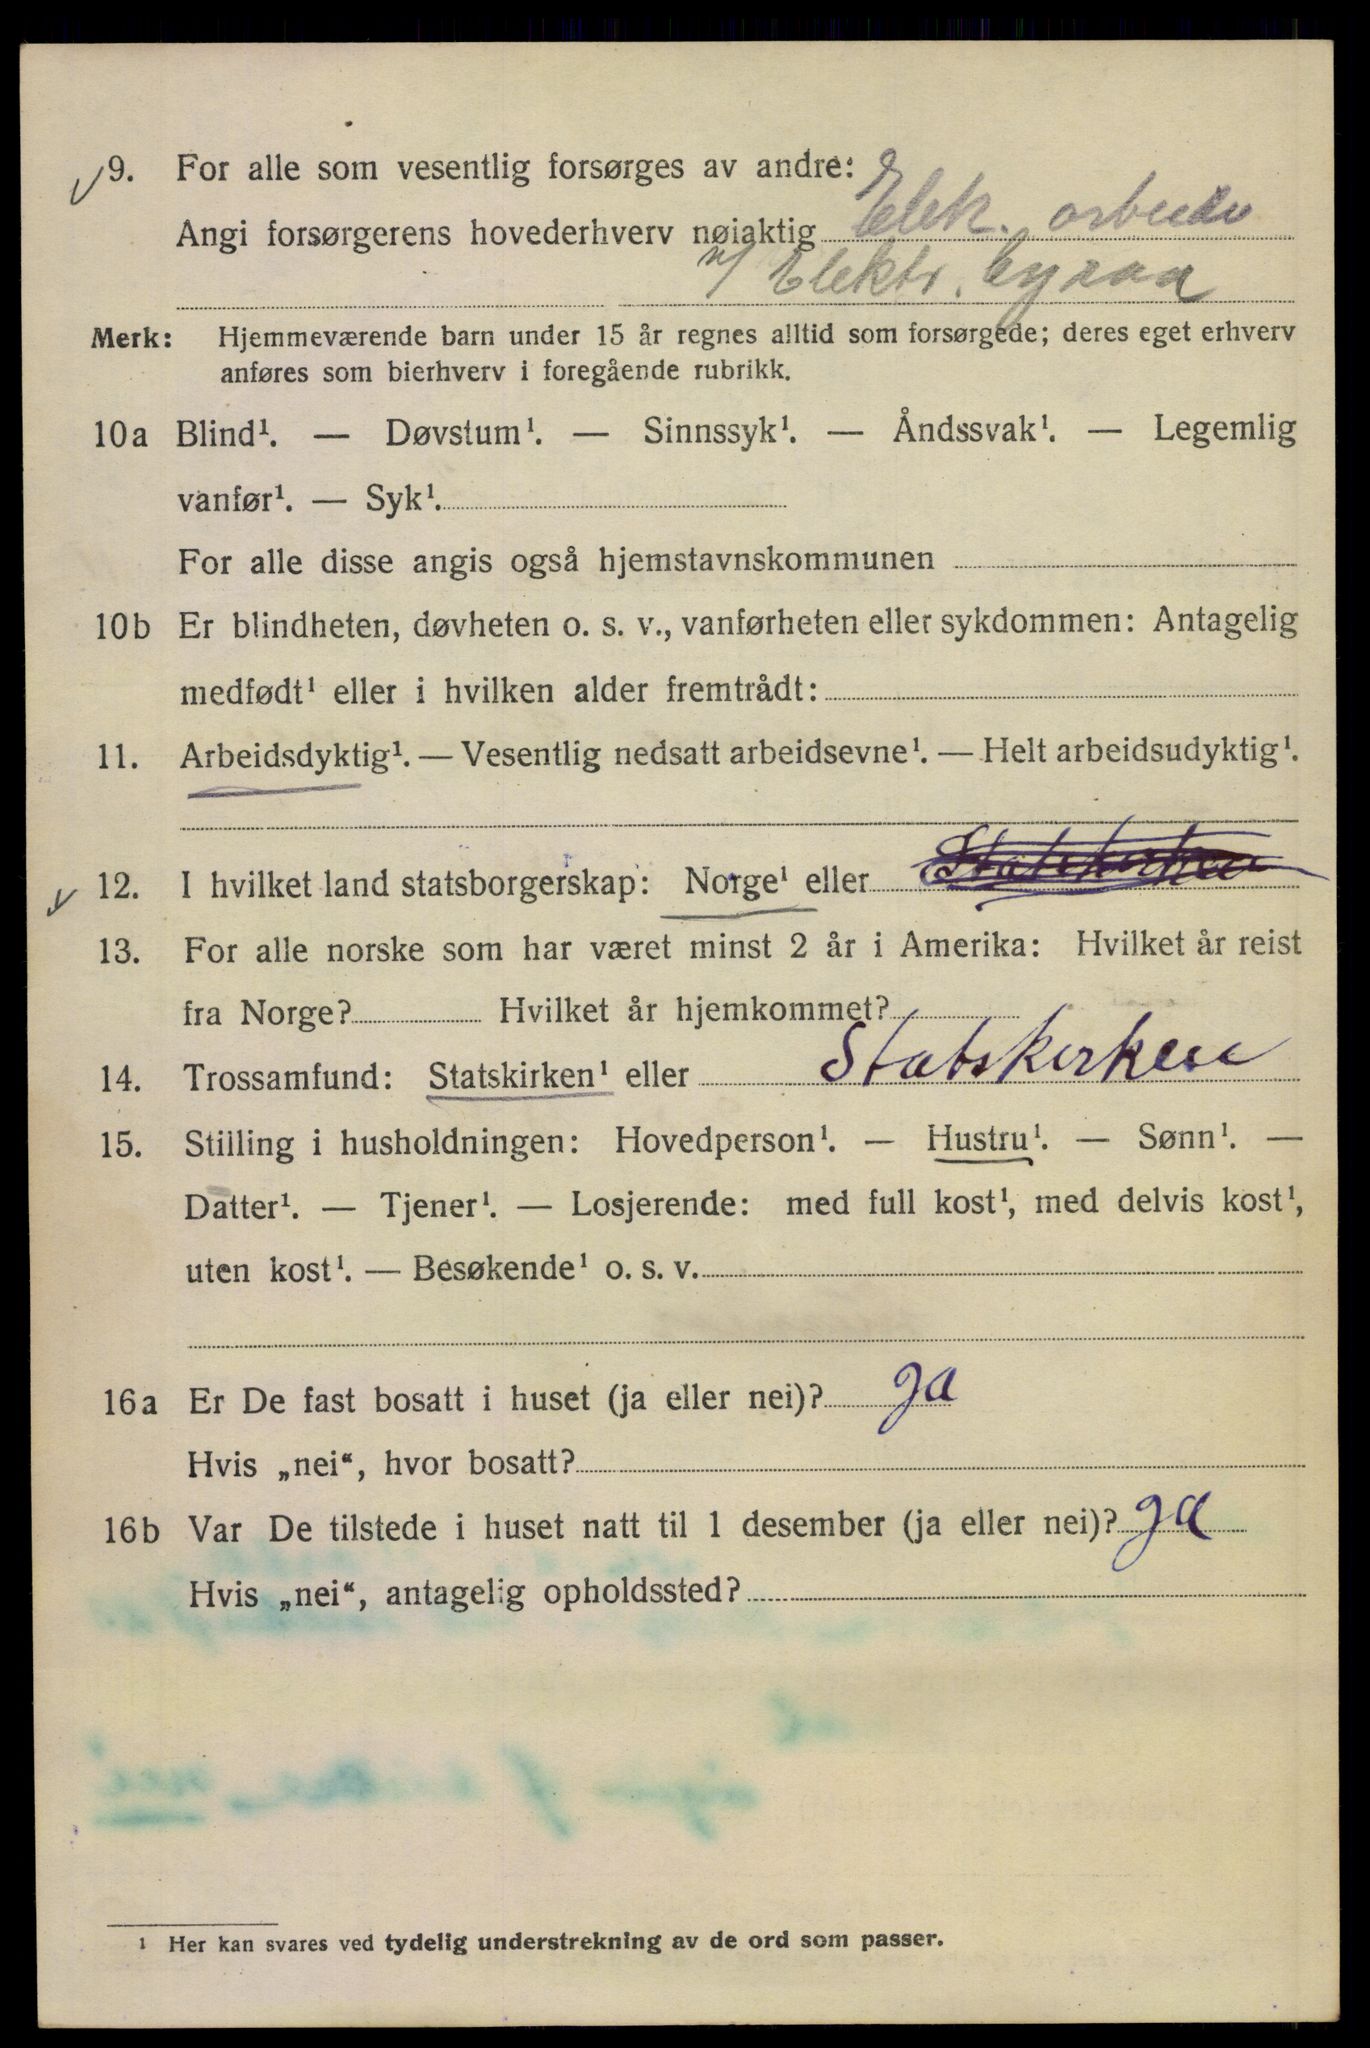 9. For alle som vesentlig forsørges av andre:
Angi forsørgerens hovederhverv nøiaktig Elek. arbeider
v/ Elektr. byraa
Merk: Hjemmeværende barn under 15 år regnes alltid som forsørgede; deres eget erhverv
anføres som bierhverv i foregående rubrikk.
10a Blind¹. — Døvstum¹. — Sinnssyk¹. — Åndssvak¹. — Legemlig
vanfør¹. — Syk¹.
For alle disse angis også hjemstavnskommunen
10b Er blindheten, døvheten o. s. v., vanførheten eller sykdommen: Antagelig
medfødt¹ eller i hvilken alder fremtrådt:
11. Arbeidsdyktig¹. — Vesentlig nedsatt arbeidsevne¹. — Helt arbeidsudyktig¹.
12. I hvilket land statsborgerskap: Norge¹ eller Statskirken
13. For alle norske som har været minst 2 år i Amerika: Hvilket år reist
fra Norge? Hvilket år hjemkommet?
14. Trossamfund: Statskirken¹ eller Statskirken
15. Stilling i husholdningen: Hovedperson¹. — Hustru¹. — Sønn¹. —
Datter¹. — Tjener¹. — Losjerende: med full kost¹, med delvis kost¹,
uten kost¹. — Besøkende¹ o. s. v.
16a Er De fast bosatt i huset (ja eller nei)? Ja
Hvis „nei“, hvor bosatt?
16b Var De tilstede i huset natt til 1 desember (ja eller nei)? Ja
Hvis „nei“, antagelig opholdssted?
¹ Her kan svares ved tydelig understrekning av de ord som passer.